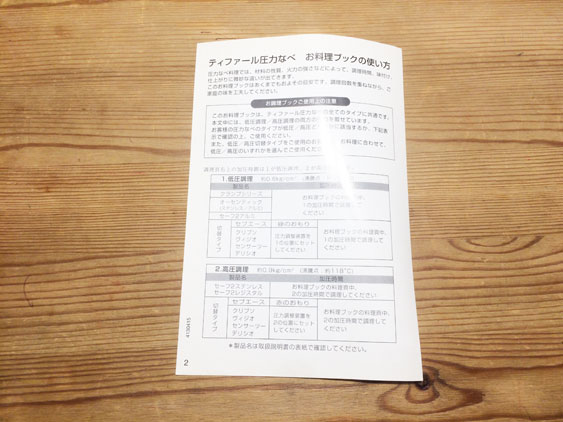 ティファール圧力なべ　お料理ブックの使い方
圧力なべ料理では、材料の性質、火力の強さなどによって、調理時間、味付け、
仕上がりに微妙な違いが出てきます。
このお料理ブックはあくまでもおよその目安です。調理回数を重ねながら、ご
家庭の味を工夫してください。
お調理ブックご使用上の注意
このお料理ブックは、ティファール圧力なべ全てのタイプに共通です。
本文中には、低圧調理／高圧調理の両方の
を載せています。
お客様の圧力なべのタイプが低圧／高圧
に該当するか、下記表
示で確認の上、ご使用くだ
また、低圧／高圧切替タイプをご使用のお
お料理に合わせて、
低圧／高圧のいずれかを選んでご使用くだ
1.低圧調理
製品名
クランプシリーズ
オーセンティック
セーフ2アルミ
お料理ブックの料理表中、
1の加圧時間で調理して
ください
切替タイプ
セブエース
クリプソ
ヴィジオ
センサーツー
デリシオ
緑のおもり
圧力調整装置を
1の位置にセット
してください
お料理ブックの料理表中、
1の加圧時間で調理して
ください
2.高圧調理　約0.9kg/cm²（沸騰点：約118℃）
製品名
加圧時間
セーフ2ステンレス
セーフ2レジスタル
お料理ブックの料理表中、
2の加圧時間で調理してください
切替タイプ
セブエース
クリプソ
ヴィジオ
センサーツー
デリシオ
赤のおもり
圧力調整装置を
2の位置にセット
してください
お料理ブックの料理表中、
2の加圧時間で調理して
ください
＊製品名は取扱説明書の表紙で確認してください。
4130415
2